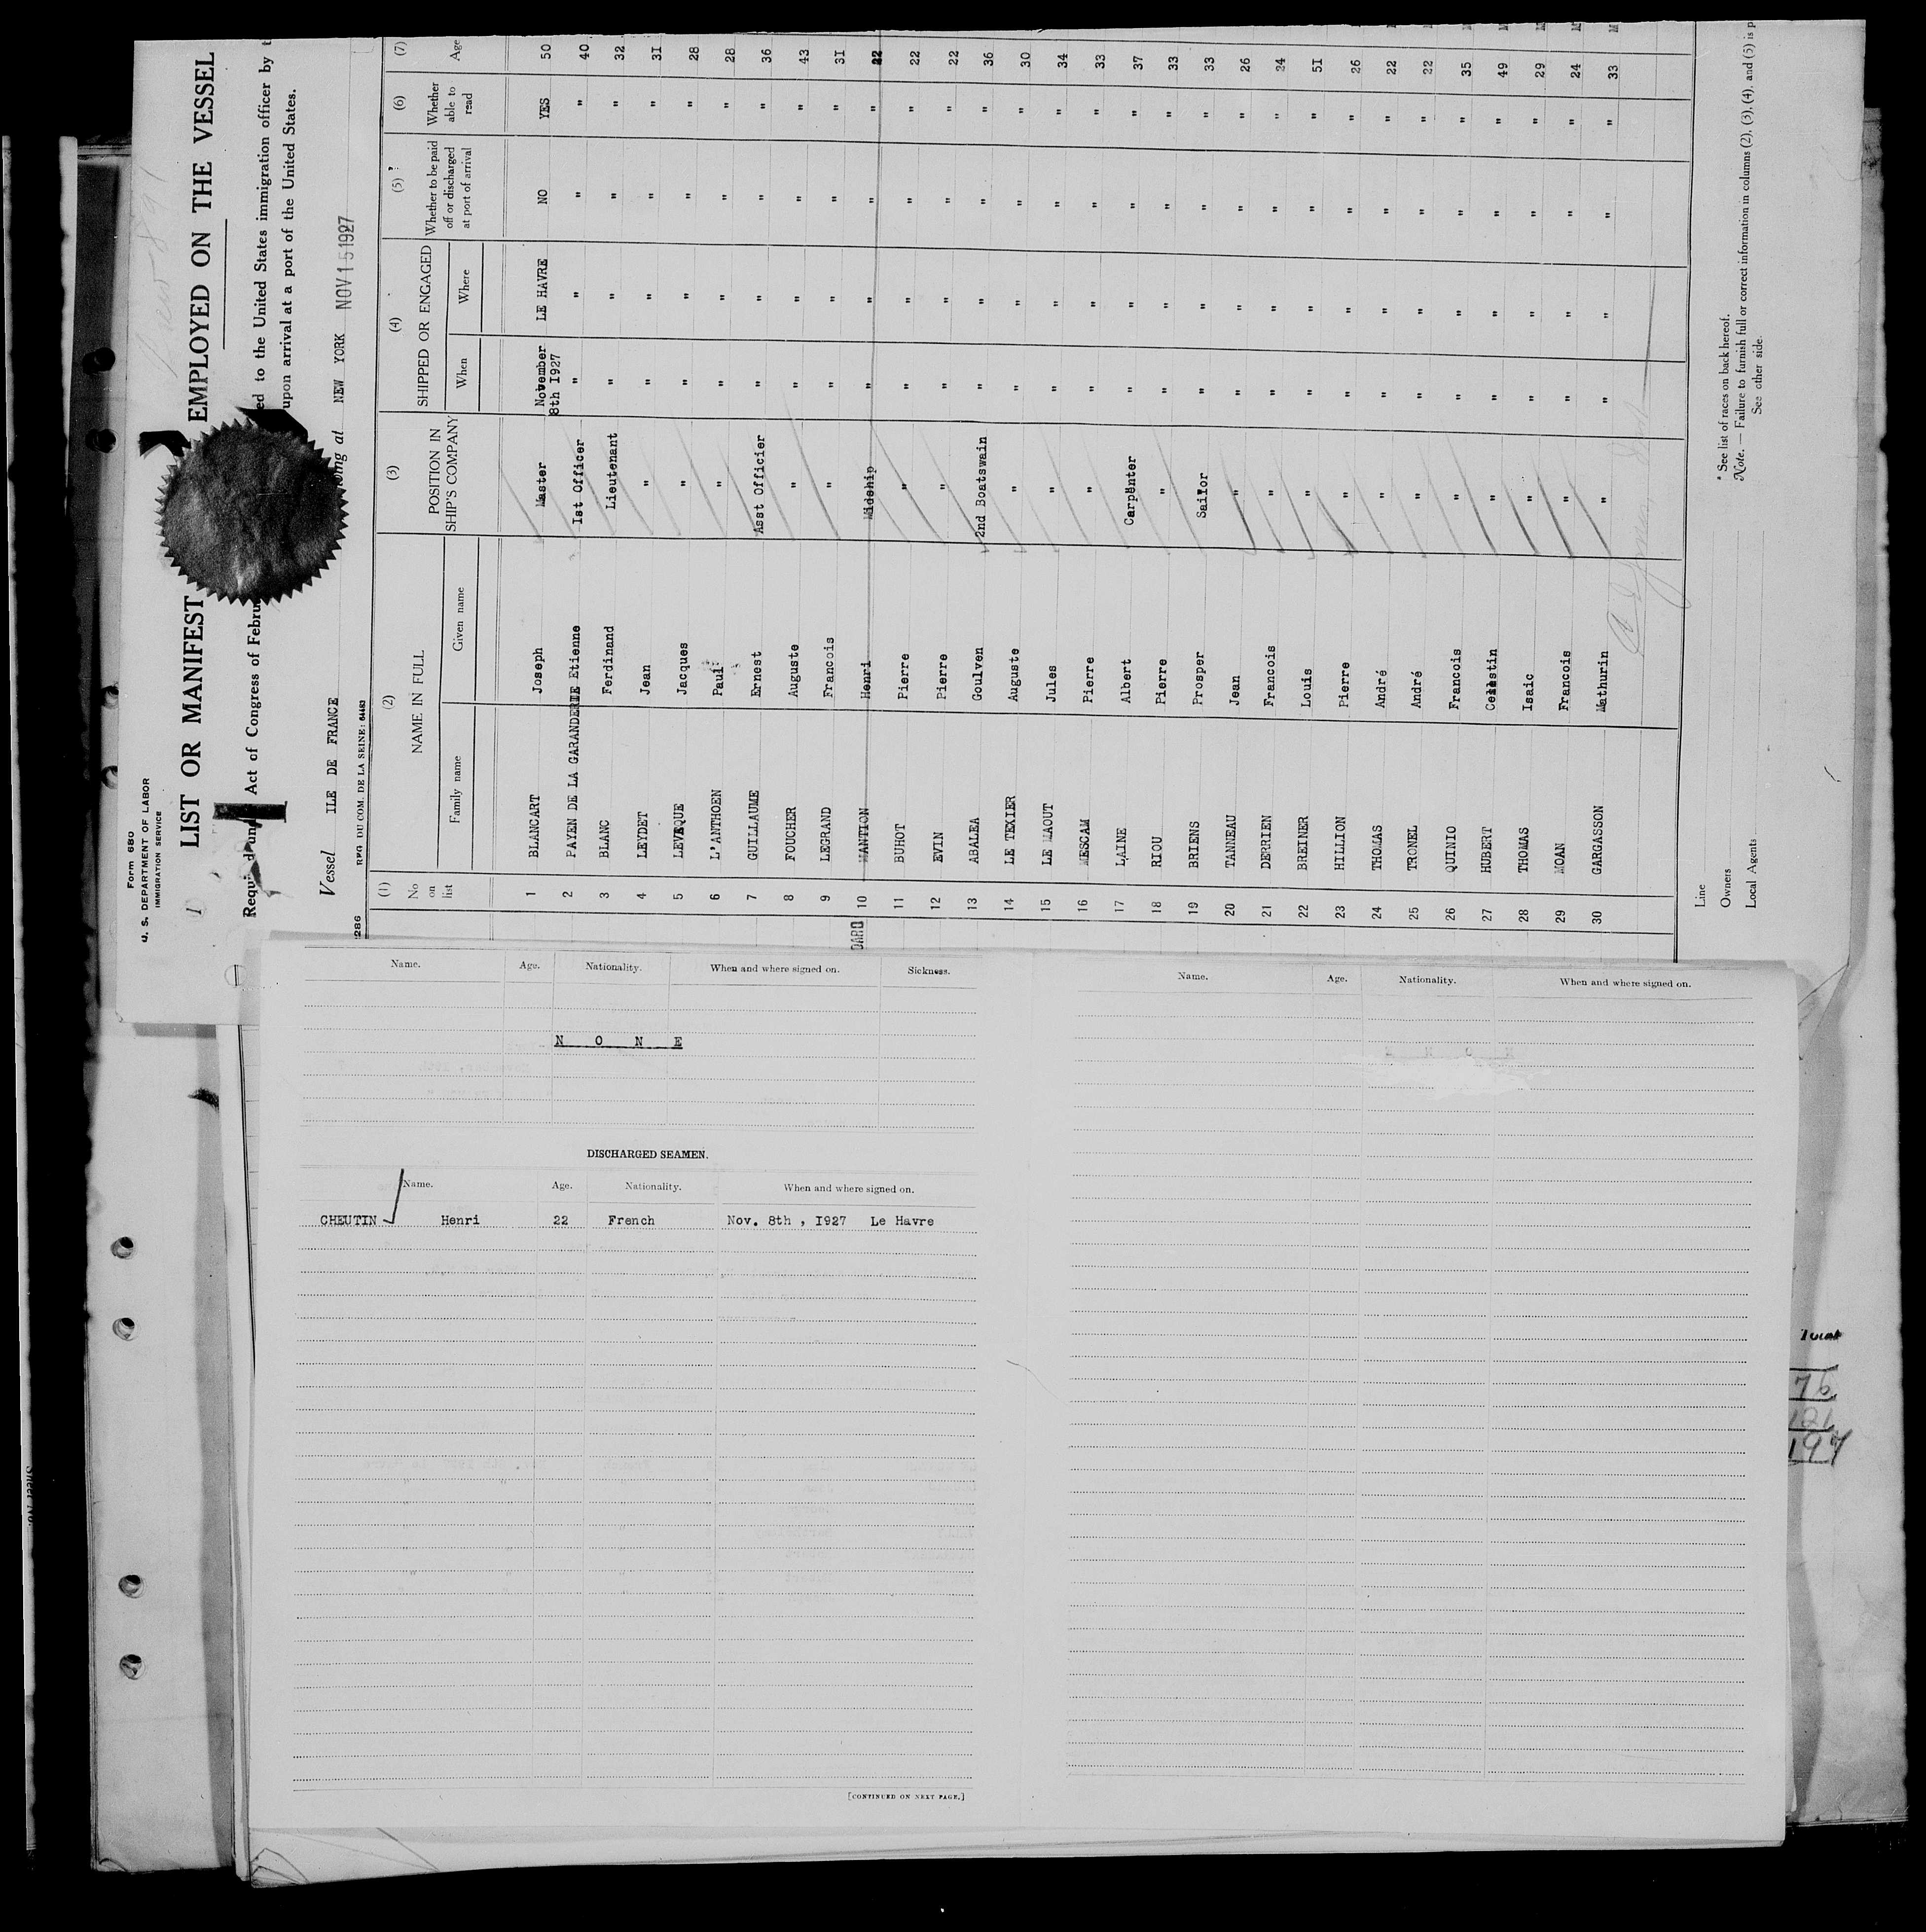 Form 680
U. S. DEPARTMENT OF LABOR
IMMIGRATION SERVICE
LIST OR MANIFEST EMPLOYED ON THE VESSEL
Act of Congress of Febru ed to the United States immigration officer by t
upon arrival at a port of the United States.
Vessel ILE DE FRANCE at NEW YORK NOV 15 1927
REG DU COM. DE LA SEINE: 64483
(1) (2) (3) (4) (5) (6) (7)
No on list NAME IN FULL POSITION IN SHIP'S COMPANY SHIPPED OR ENGAGED Whether to be paid off or discharged at port of arrival Whether able to read Age
Family name Given name When Where
1 BLANCART Joseph Master November 8th 1927 LE HAVRE NO YES 50
2 PAYEN DE LA GARANDERIE Etienne 1st Officer " " " " 40
3 BLANC Ferdinand Lieutenant " " " " 32
4 LEYDET Jean " " " " " 31
5 LEVEQUE Jacques " " " " " 28
6 L'ANTHOEN Paul " " " " " 28
7 GUILLAUME Ernest Asst Officier " " " " 36
8 FOUCHER Auguste " " " " " 43
9 LEGRAND Francois " " " " " 31
10 MANTION Henri Midship " " " " 22
11 BUHOT Pierre " " " " " 22
12 EVIN Pierre " " " " " 22
13 ABALEA Goulven 2nd Boatswain " " " " 36
14 LE TEXIER Auguste " " " " " 30
15 LE MAOUT Jules " " " " " 34
16 MESCAM Pierre " " " " " 33
17 LAINE Albert Carpenter " " " " 37
18 RIOU Pierre " " " " " 33
19 BRIENS Prosper Sailor " " " " 33
20 TANNEAU Jean " " " " " 26
21 DERRIEN Francois " " " " " 24
22 BREINER Louis " " " " " 51
23 HILLION Pierre " " " " " 26
24 THOMAS André " " " " " 22
25 TRONEL André " " " " " 22
26 QUINIO Francois " " " " " 35
27 HUBERT Celestin " " " " " 49
28 THOMAS Isaic " " " " " 29
29 MOAN Francois " " " " " 24
30 GARGASSON Mathurin " " " " " 33
Line
Owners
Local Agents
* See list of races on back hereof.
Note. — Failure to furnish full or correct information in columns (2), (3), (4), and (5) is p
See other side.
Name. Age. Nationality. When and where signed on. Sickness.
N O N E
DISCHARGED SEAMEN.
Name. Age. Nationality. When and where signed on.
CHEUTIN Henri 22 French Nov. 8th , 1927 Le Havre
[CONTINUED ON NEXT PAGE.]
Name. Age. Nationality. When and where signed on.
Total
76
121
197